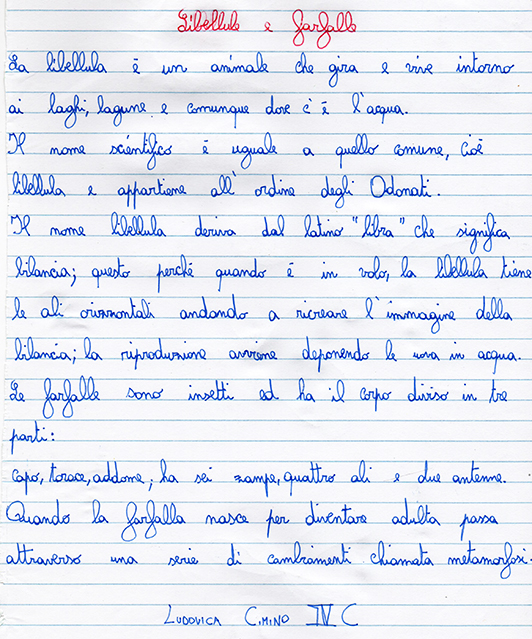 Libellule e farfalle
La libellula è un animale che gira e vive intorno
ai laghi, lagune e comunque dove c'è l'acqua.
Il nome scientifico è uguale a quello comune, cioè
libellula e appartiene all'ordine degli Odonati.
Il nome libellula deriva dal latino "libra" che significa
bilancia; questo perché quando è in volo, la libellula tiene
le ali orizzontali andando a ricreare l'immagine della
bilancia; la riproduzione avviene deponendo le uova in acqua.
Le farfalle sono insetti ed ha il corpo diviso in tre
parti:
capo, torace, addome; ha sei zampe, quattro ali e due antenne.
Quando la farfalla nasce per diventare adulta passa
attraverso una serie di cambiamenti chiamata metamorfosi.
LUDOVICA CIMINO IV C